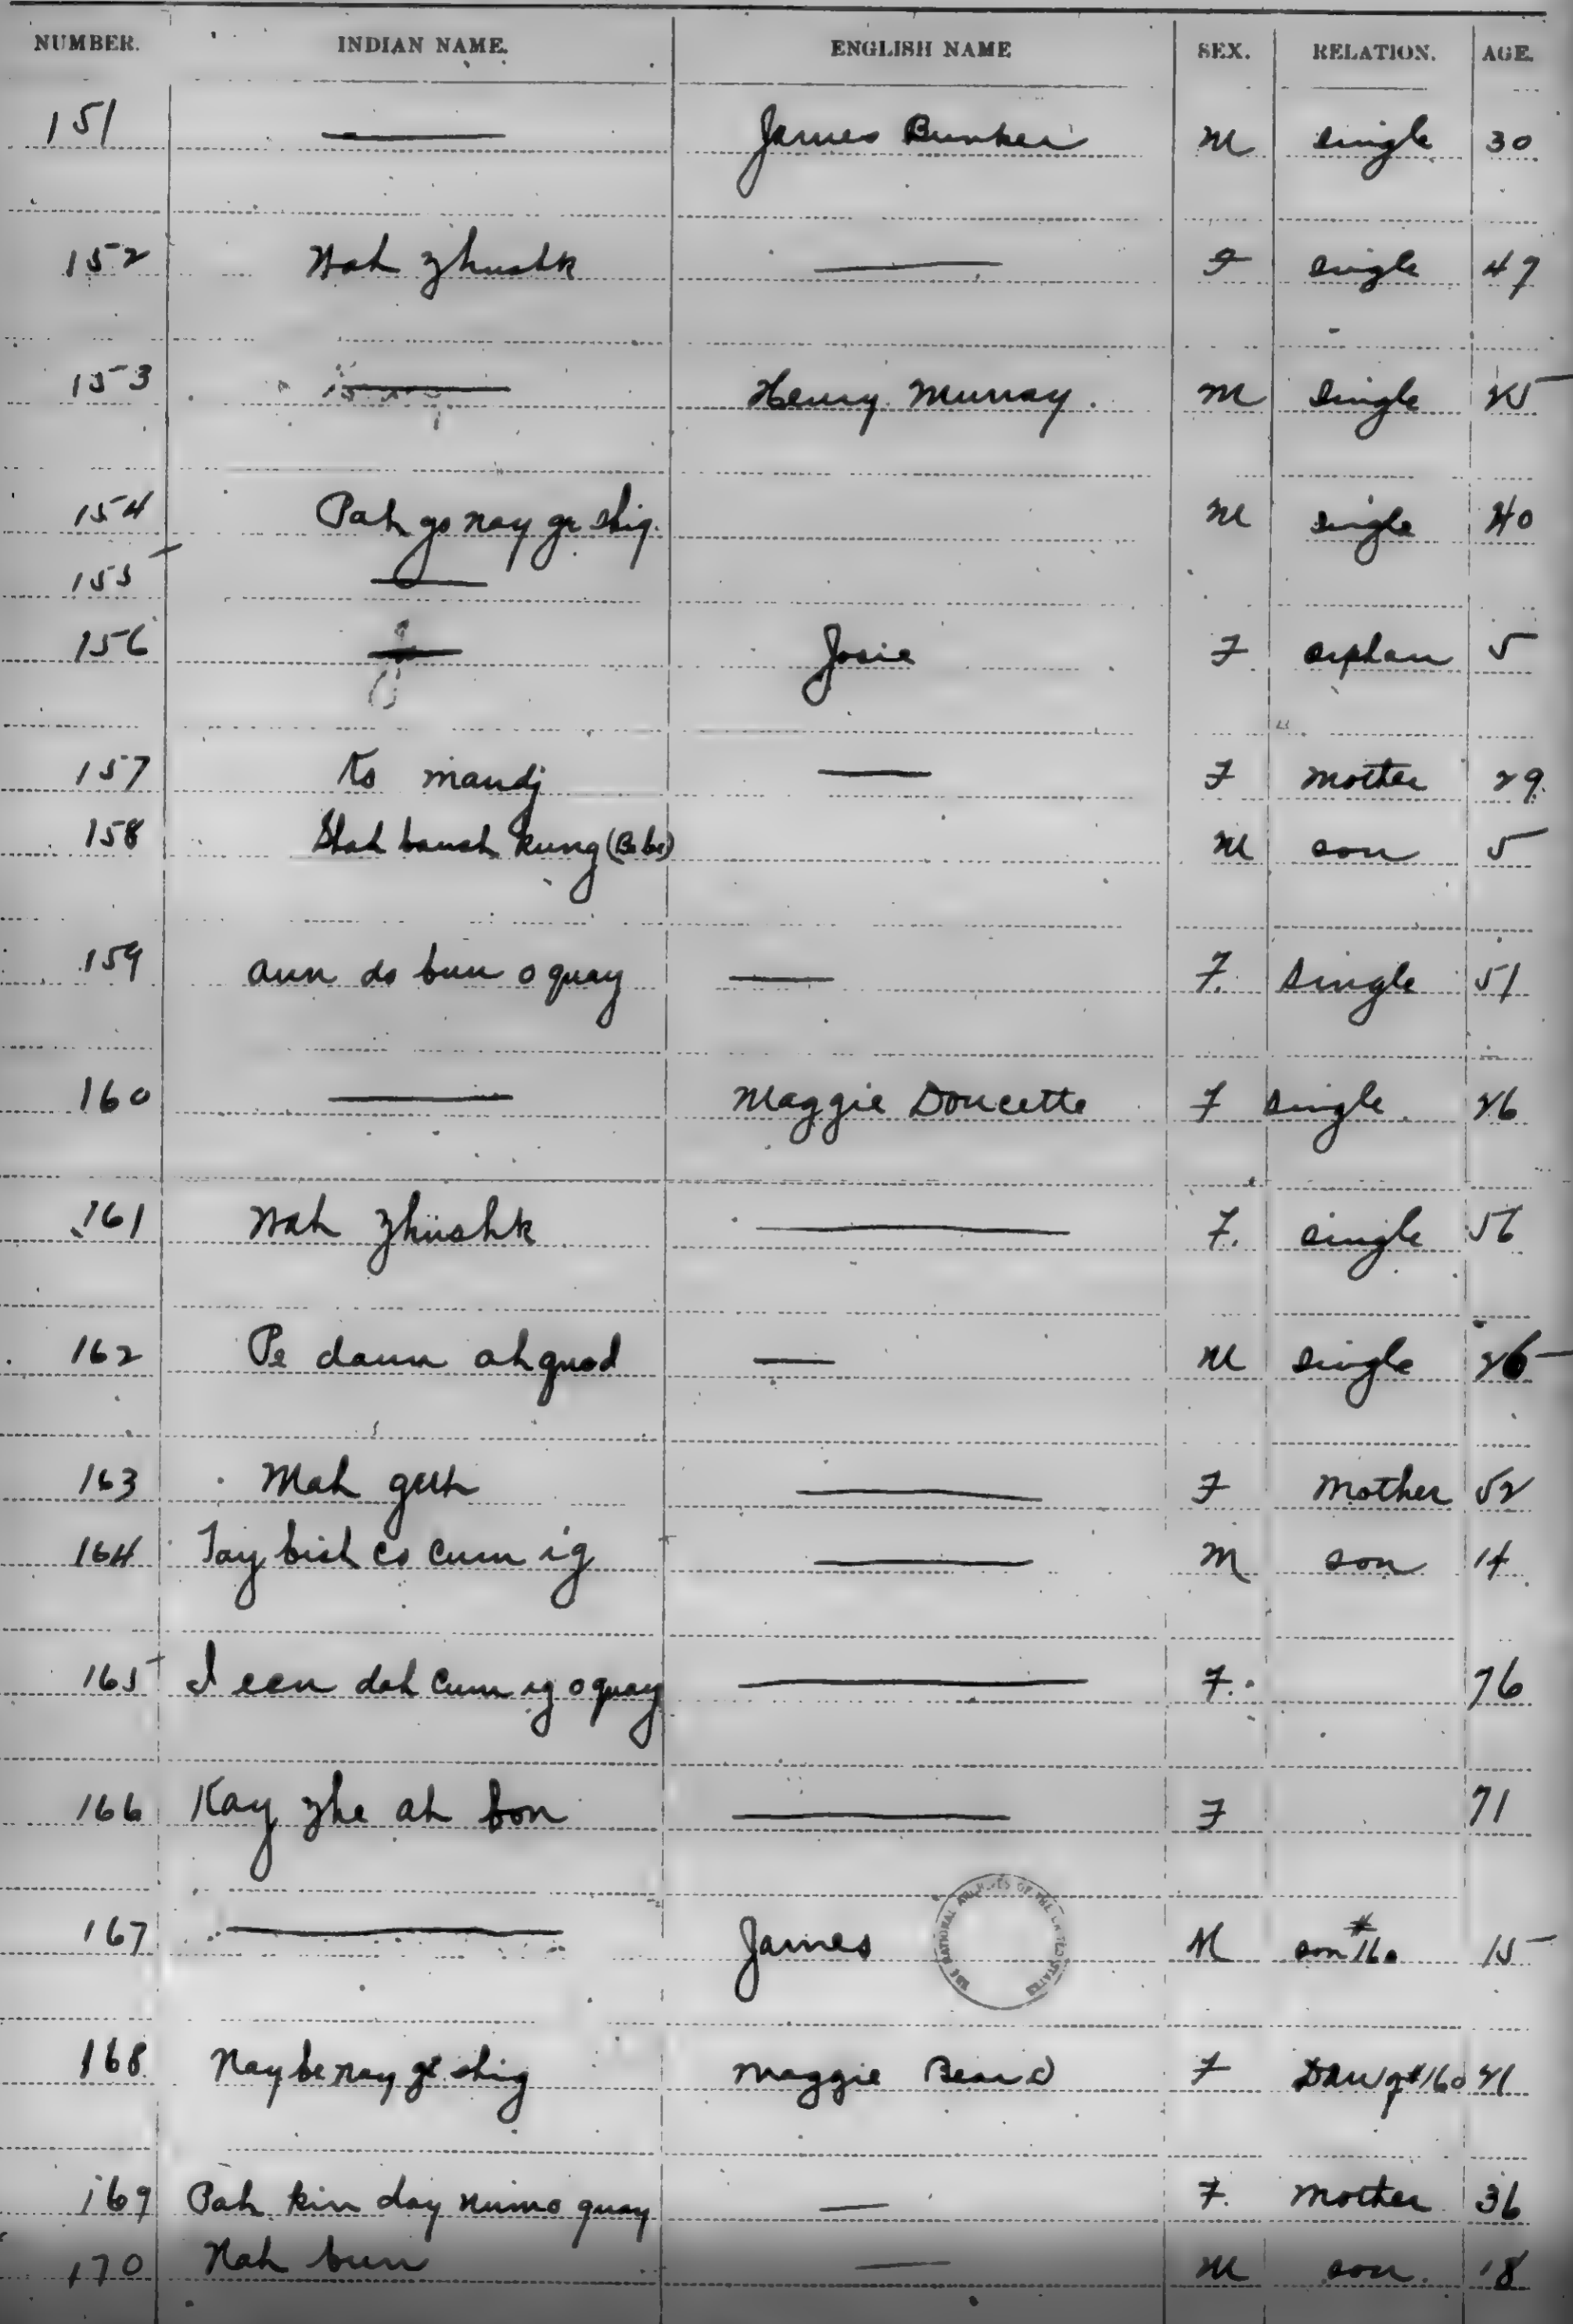 NUMBER. INDIAN NAME. ENGLISH NAME SEX. RELATION. AGE.
151 — James Bunker M single 30
152 Nah zhushk — F single 47
153 — Henry Murray. M single 25
154 Pah go nay ge shig. M single 40
155 —
156 — Josie F orphan 5
157 Ko maudj — F mother 29
158 Shah baush kung (Bebe) M son 5
159 aun do bun o quay — F. single 51
160 — Maggie Doucette F single. 26
161 Nah zhiishk — F. single 56
162 Pe daun ah quod — M single
163 Mah geeh — F Mother 52
164 Tay bish co cum ig — M son 14
165 I een dah cum ig o quay — F. 76
166 Kay zhe ah bon — F 71
167 — James M son #160 15
THE NATIONAL ARCHIVES OF THE UNITED STATES
168 Nay be nay ge shig Maggie Beard F Daug #160 21
169 Pah kin day nimo quay — F. Mother 36
170 Nah bun — M son. 18